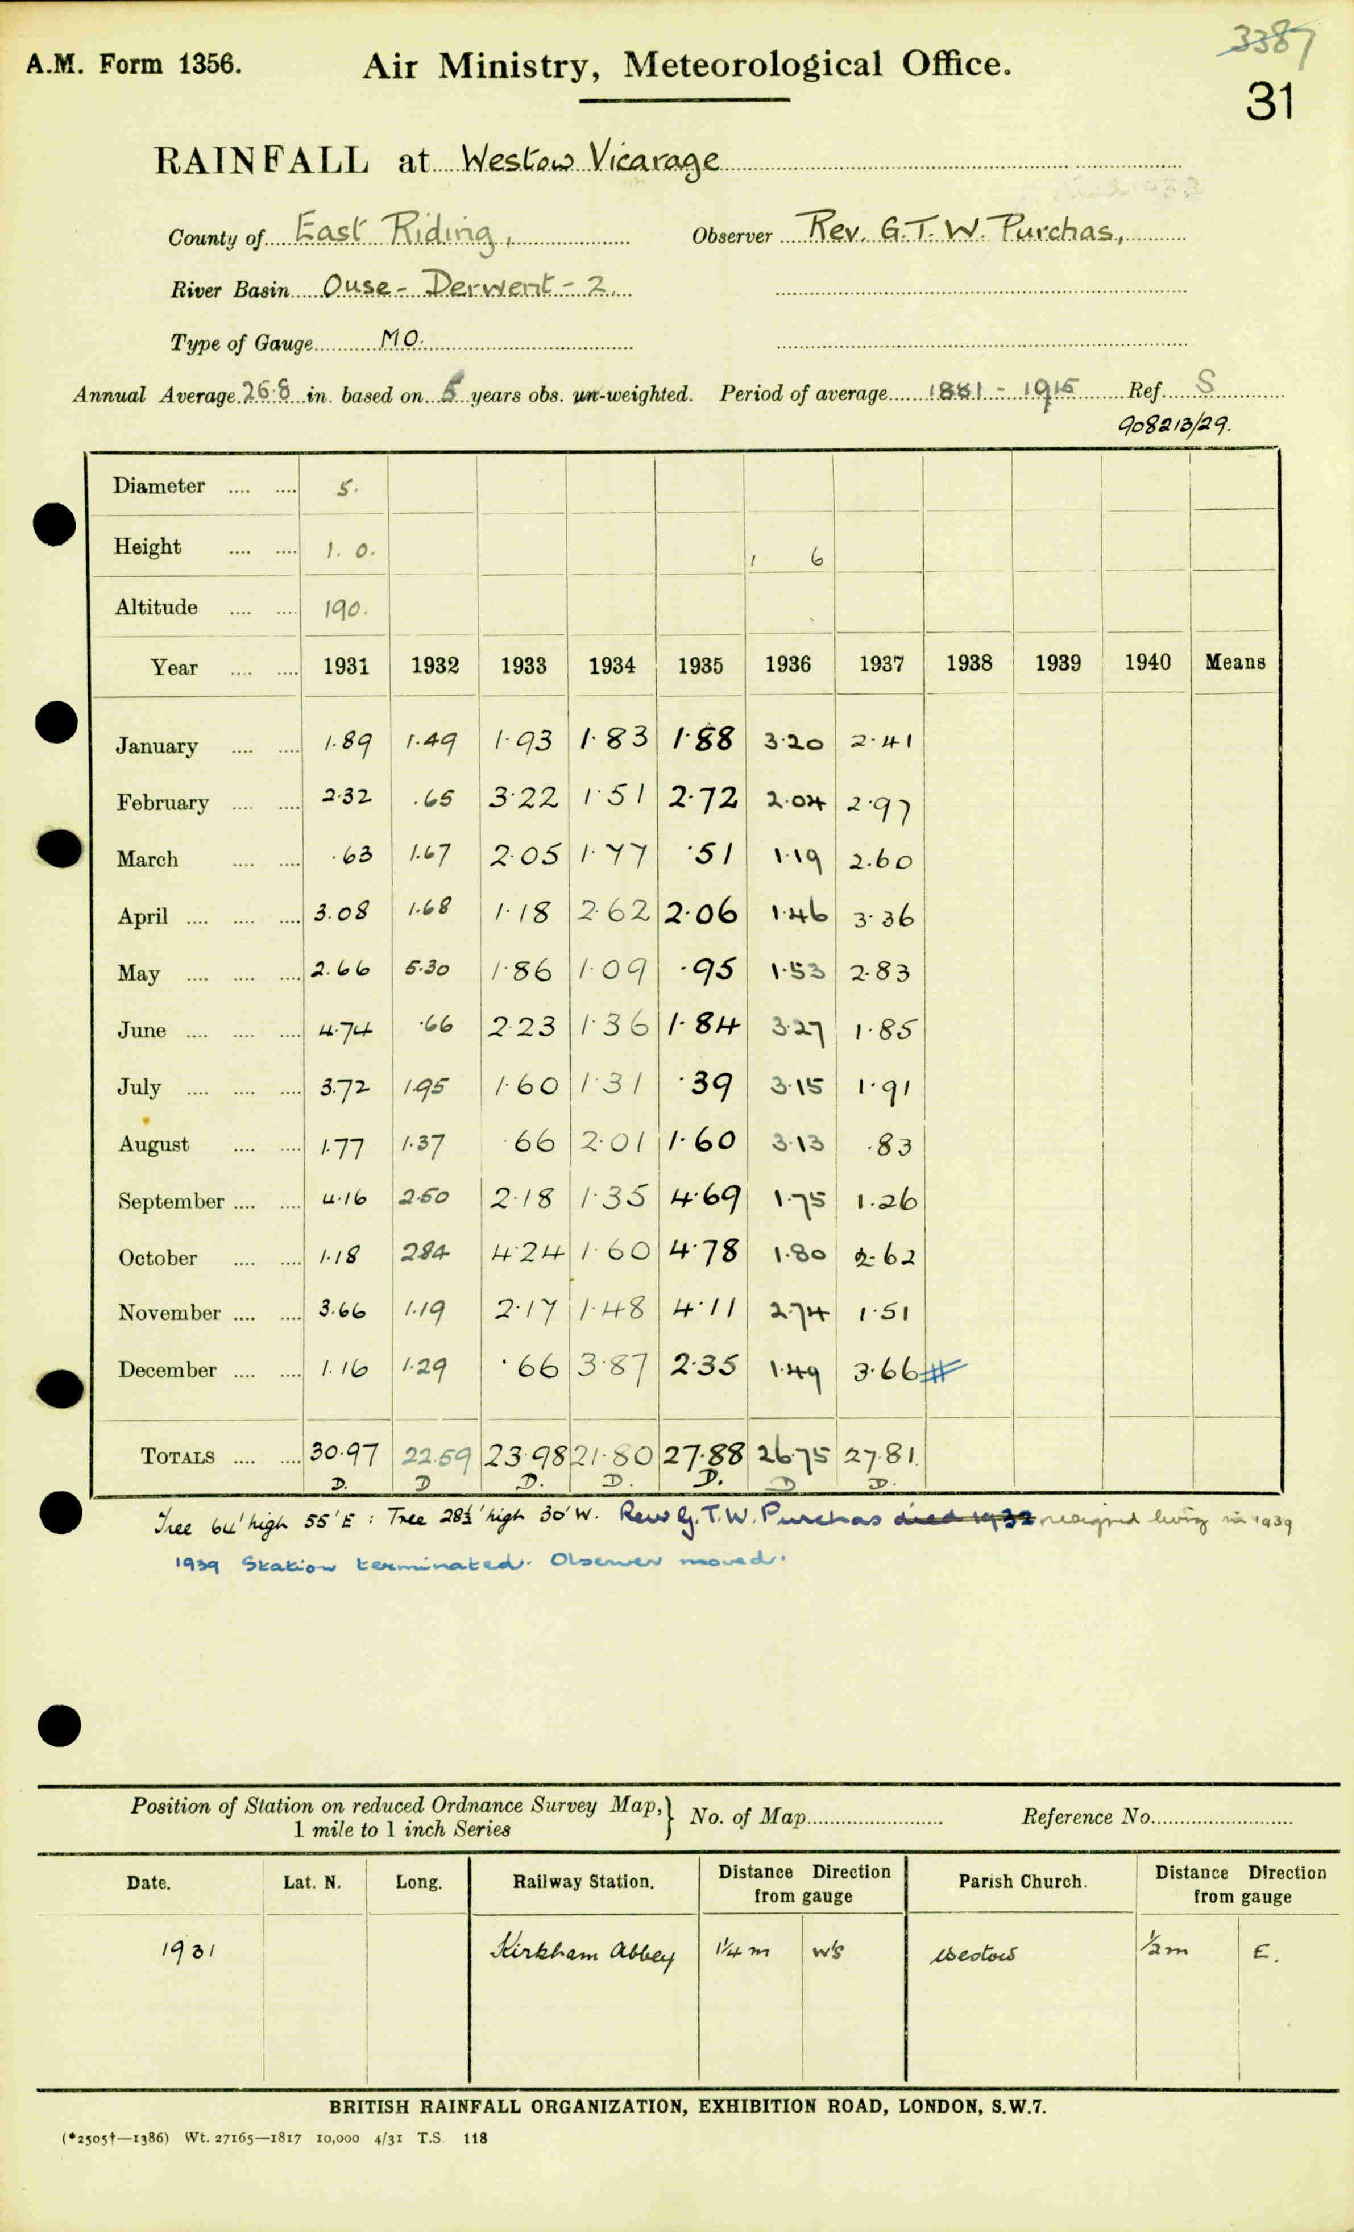 3387
A.M. Form 1356. Air Ministry, Meteorological Office.
31
RAINFALL at Westow Vicarage
County of East Riding, Observer Rev. G.T.W. Purchas,
River Basin Ouse - Derwent - 2.
Type of Gauge MO.
Annual Average 26.8 in. based on 5 years obs. un-weighted. Period of average 1881 - 1915 Ref. S
908213/29.
Diameter .... .... 5.
Height .... .... 1. 0. 1 6
Altitude .... .... 190.
Year .... .... 1931 1932 1933 1934 1935 1936 1937 1938 1939 1940 Means
January .... .... 1.89 1.49 1.93 1.83 1.88 3.20 2.41
February .... .... 2.32 .65 3.22 1.51 2.72 2.04 2.97
March .... .... .63 1.67 2.05 1.77 .51 1.19 2.60
April .... .... .... 3.08 1.68 1.18 2.62 2.06 1.46 3.36
May .... .... .... 2.66 5.30 1.86 1.09 .95 1.53 2.83
June .... .... .... 4.74 .66 2.23 1.36 1.84 3.27 1.85
July .... .... .... 3.72 1.95 1.60 1.31 .39 3.15 1.91
August .... .... 1.77 1.37 .66 2.01 1.60 3.13 .83
September .... .... 4.16 2.50 2.18 1.35 4.69 1.75 1.26
October .... .... 1.18 2.84 4.24 1.60 4.78 1.80 2.62
November .... .... 3.66 1.19 2.17 1.48 4.11 2.74 1.51
December .... .... 1.16 1.29 .66 3.87 2.35 1.49 3.66 #
TOTALS .... .... 30.97 22.59 23.98 21.80 27.88 26.75 27.81
D. D D. D. D. D D.
Tree 64' high 55' E : Tree 28½' high 30' W. Rev G. T. W. Purchas died 1932 resigned living in 1939
1939 Station terminated. Observer moved.
Position of Station on reduced Ordnance Survey Map,} No. of Map Reference No.
1 mile to 1 inch Series
Date. Lat. N. Long. Railway Station. Distance Direction from gauge Parish Church. Distance Direction from gauge
1931 Kirkham Abbey 1¼ m W'S Westow ½ m E.
BRITISH RAINFALL ORGANIZATION, EXHIBITION ROAD, LONDON, S.W.7.
(*2505†—1386) Wt. 27165—1817 10,000 4/31 T.S. 118